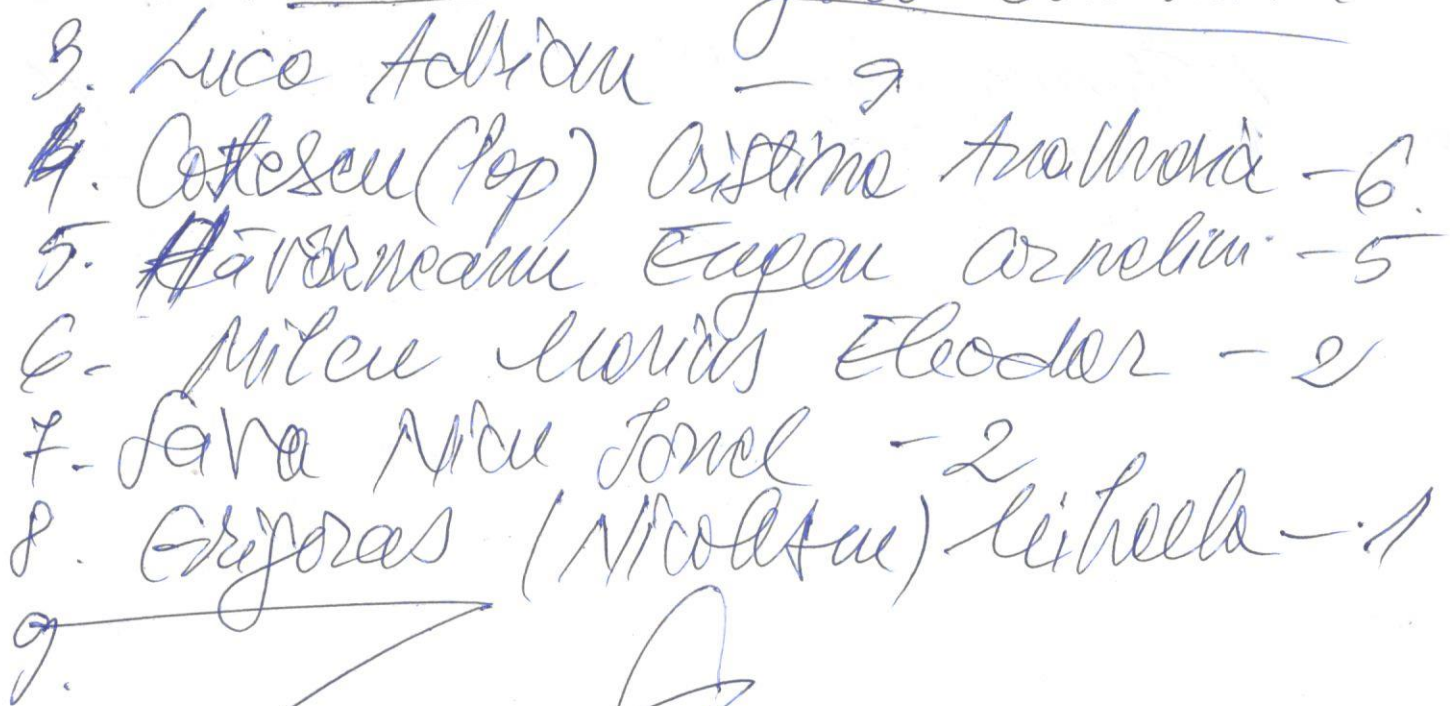 3. Luca Adrian - 9
4. Costescu (Pop) Cristina Ana Maria - 6
5. Hăvârneanu Eugen Corneliu - 5
6- Milcu Marius Eleodor - 2
7- Sava Nicu Ionel - 2
8. Grigoras (Nicolescu) Mihaela - 1
9.